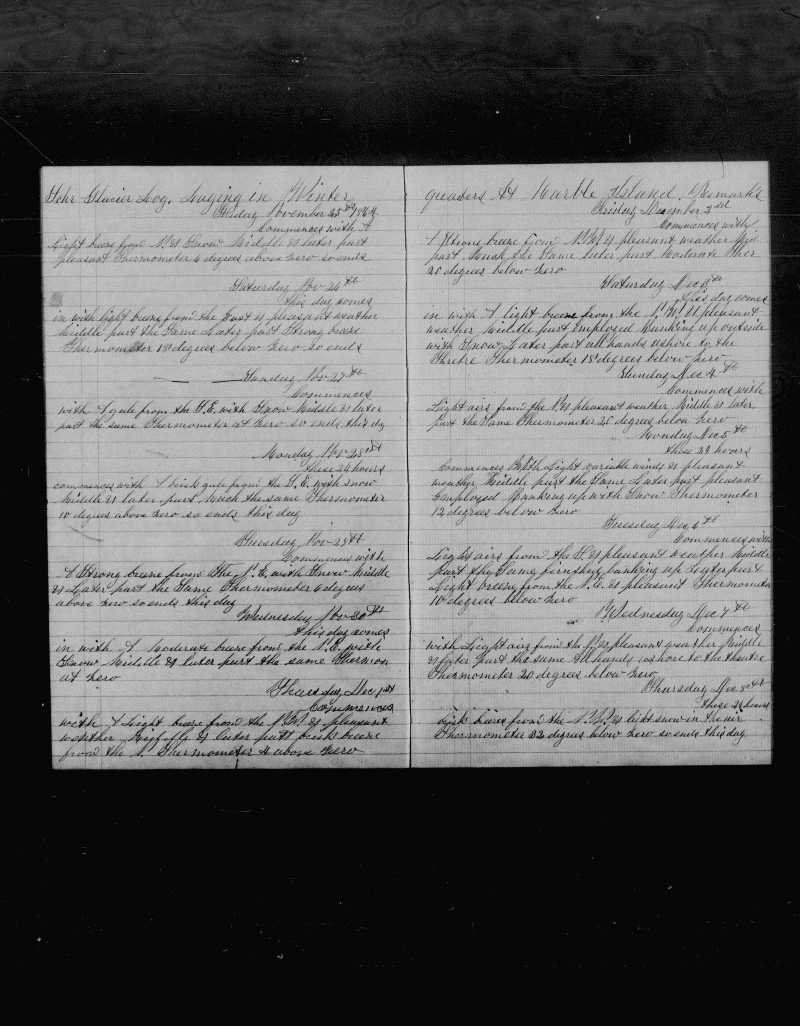 Schr Glacier Log. Laying in Winter
Friday November 25th 1864
Commences with A
Light breeze from N.W Snow Middle & later part
pleasant Thermometer 6 degrees above zero so ends
Saturday Nov 26th
this day comes
in with light breeze from the East & pleasant weather
Middle part the Same Later part Strong breeze
Thermometer 18 degrees below zero so ends
Sunday Nov 27th
Commences
with A gale from the S.E. with Snow Middle & later
part the same Thermometer at zero so ends this day
Monday Nov 28th
these 24 hours
commences with A brisk gale from the S.E. with snow
Middle & later part Much the same Thermometer
10 degrees above zero so ends this day
Tuesday Nov 29th
Commences with
A Strong breeze from The N.E. with Snow Middle
& Later part the Same Thermometer 6 degrees
above zero so ends this day
Wednesday Nov 30th
this day comes
in with A Moderate breeze from the N.E. with
Snow Middle & later part the same Thermom
at zero
Thursday Dec 1st
Commences
with A Light breeze from the N.W. & pleasant
weather Middle & later part brisk breeze
from the N. Thermometer 4 above zero
quarters At Marble Island. Remarks
Friday December 2nd
Commences with
A Strong breeze from N.W. & pleasant weather Mid
part Much the Same later part Moderate Ther
20 degrees below zero
Saturday Dec 3th
This day comes
in with A light breeze from the N.W. & pleasant
weather Middle part Employed banking up outside
with Snow Later part all hands ashore to the
Thretre Thermometer 18 degrees below zero
Sunday Dec 4th
Commences with
Light airs from the N. & pleasant weather Middle & later
part the Same Thermometer 25 degrees below zero
Monday Dec 5th
these 24 hours
Commences With Light varible winds & pleasant
weather Middle part the Same Later part pleasant
Employed banking up with Snow Thermometer
12 degrees below zero
Tuesday Dec 6th
Commences with
Light airs from the S. & pleasant weather Middle
part the Same finished banking up Later part
Light breeze from the N.E. & pleasant Thermometer
10 degrees below zero
Wednesday Dec 7th
Commences
with Light airs from the N. & pleasant weather Middle
& later part the same All hands ashore to the theatre
Thermometer 20 degrees below zero
Thursday Dec 8th
these 24 hours
brisk breeze from the N.W. & light snow in the air
Thermometer 32 degrees below zero so ends this day